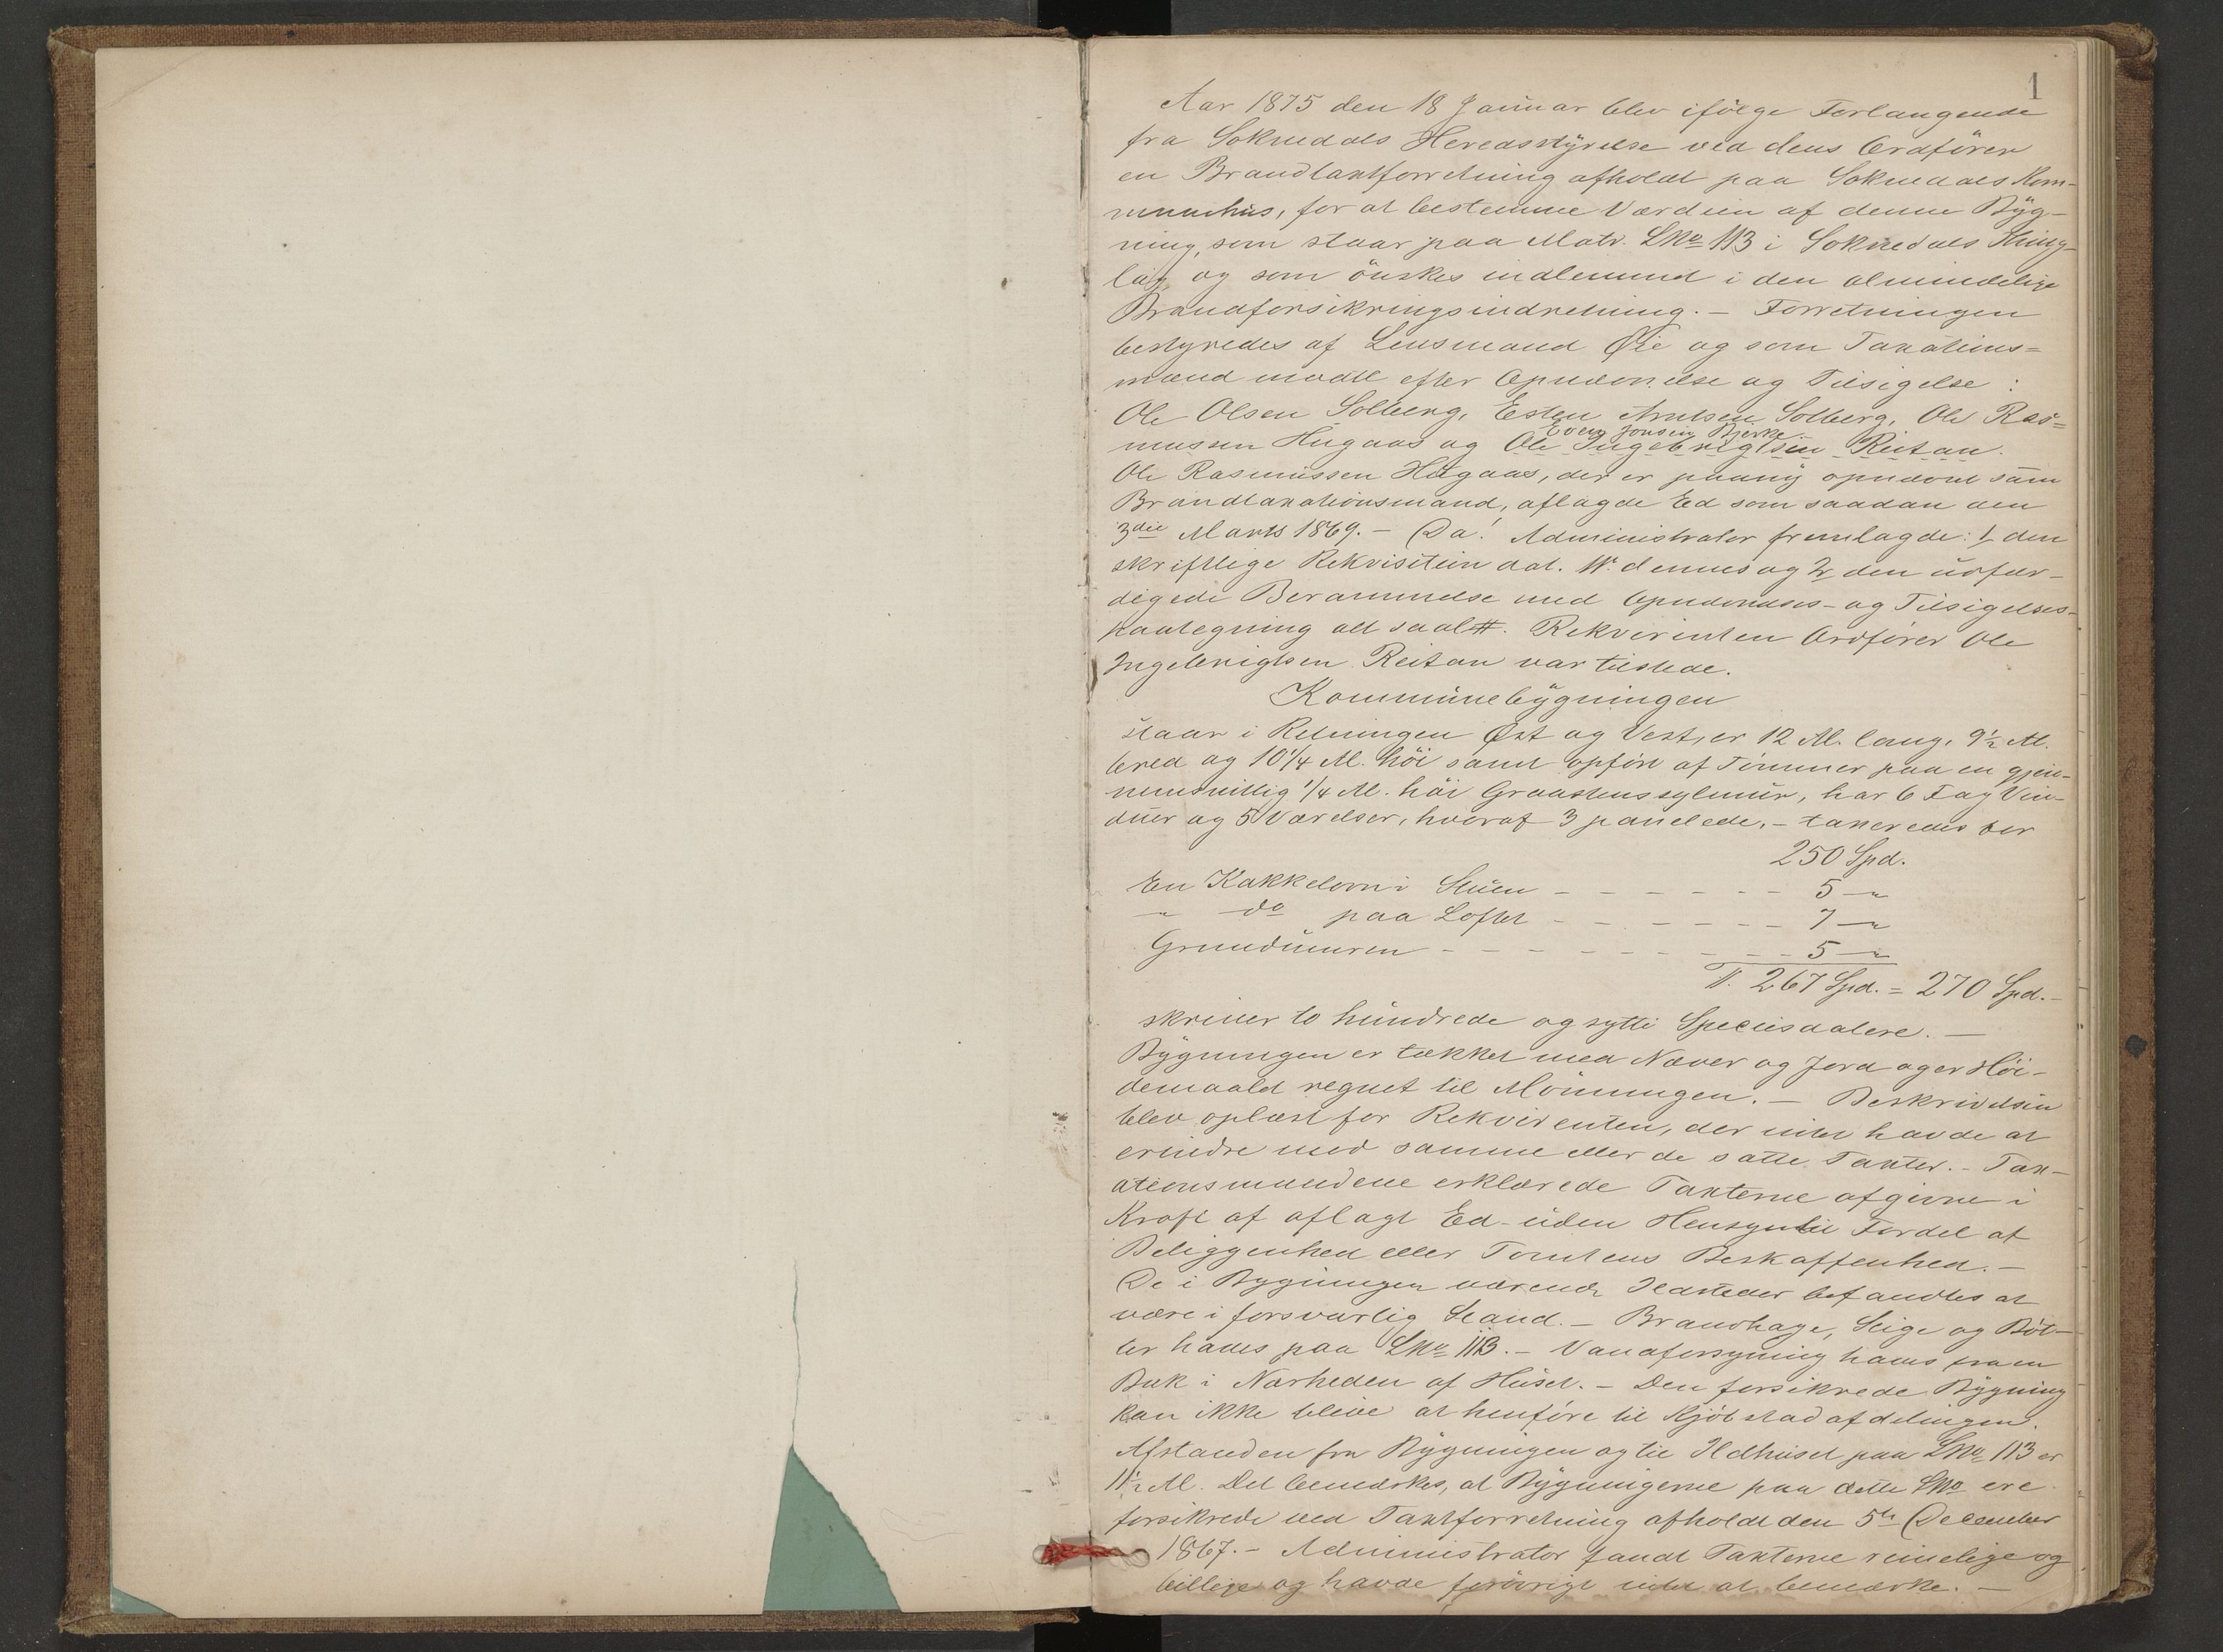 1
Aar 1875 den 18 Januar blev ifölge Forlangende
fra Soknedals Heredsstyrelse ved dens Ordförer
en Brandtaxtforretning afholdt paa Soknedals Kom-
munehus, for at bestemme Værdien af denne Byg-
ning, som staar paa Matr. LNo 113 i Soknedals Thing-
lag, og som önskes indlemmed i den almindelige
Brandforsikringsindretning. – Forretningen
bestyredes af Lensmand Øie og som Taxations=
mænd mødte efter Opnævnelse og Tilsigelse :
Ole Olsen Solberg, Esten Arntsen Solberg, Ole Ras=
Even Jonsen Bjerke
mussen Hugaas og Ole Ingebrigtsen Reitan.
Ole Rasmussen Hugaas, der er paany opnævnt som
Brandtaxationsmand, aflagde Ed som saadan den
3die Marts 1869. – Da! Administrator fremlagde: 1, den
skriftlige Rekvisition dat. 11. dennes og 2, den udfær-
digede Berammelse med Opnævnelses- og Tilsigelses-
paategning alt saal. Rekvirenten Ordförer Ole
Ingebrigtsen Reitan var tilstede.
Kommunebygningen
staar i Retningen Øst og Vest, er 12 Al. lang, 9½ Al.
bred og 10¼ Al. höi samt opfört af Tömmer paa en gjen-
nemsnitlig ¼ Al. höi Graastenssylmur, har 6 Fag Vin-
duer og 5 Værelser, hvoraf 3 panelede, – taxeredes for
250 Spd.
En Kakkelovn i Stuen – – – – – – – 5 – "
" do paa Loftet – – – – – – – 7 – "
Grundmuren – – – – – – – – – 5 – "
Tl. 267 Spd. = 270 Spd. –
skriver to hundrede og sytti Speciesdalere. –
Bygningen er tækket med Næver og Jord og er Höi-
demaalet regnet til Mönningen. – Beskrivelsen
blev oplæst for Rekvirenten, der intet havde at
erindre mod samme eller de satte Taxter. – Tax-
ationsmændene erklærede Taxterne afgivne i
Kraft af aflagt Ed uden Hensyn til Fordel af
Beliggenhed eller Tomtens Beskaffenhed. –
De i Bygningen værende Ildsteder befandtes at
være i forsvarlig Stand. – Brandhage, Stige og Böt-
ter haves paa LNo 113. – Vandforsyning haves fra en
Bæk i Nærheden af Huset. – Den forsikrede Bygning
kan ikke blive at henföre til Kjöbstadafdelingen.
Afstanden fra Bygningen og til Ildhuset paa LNo 113 er
11½ Al. Det bemærkes, at Bygningerne paa dette LNo ere
forsikrede ved Taxtforretning afholdt den 5te December
1867. – Administrator fandt Taxterne rimelige og
billige og havde forövrigt intet at bemærke. –